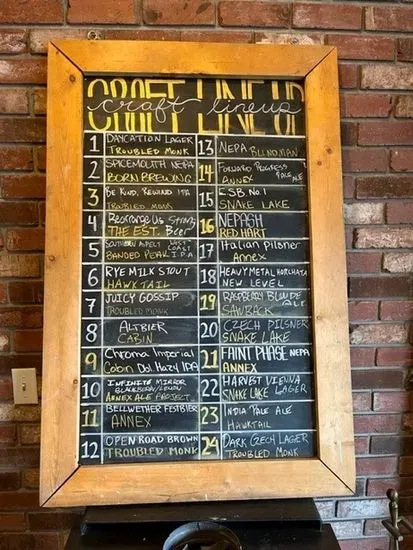 CRAFT LINE UP
craft lineup
1 DAYCATION LAGER
TROUBLED MONK
2 SPICEMOUTH NEPA
BORN BREWING
3 BE KIND, REWIND IPA
TROUBLED MONK
4 Rearrange Us Strong
THE EST. Beer
5 SOUTHERN ASPECT WEST COAST
BANDED PEAK I.P.A
6 RYE MILK STOUT
HAWKTAIL
7 JUICY GOSSIP
TROUBLED MONK
8 ALTBIER
CABIN
9 Chroma Imperial
Cabin Dbl Hazy IPA
10 INFINITE MIRROR
BLACKBERRY/LEMON
ANNEX ALE PROJECT
11 BELLWETHER FESTBIER
ANNEX
12 OPEN ROAD BROWN
TROUBLED MONK
13 NEPA
BLINDMAN
14 FORWARD PROGRESS
ANNEX PALE ALE
15 ESB No.1
SNAKE LAKE
16 NEPASH
RED HART
17 Italian Pilsner
Annex
18 HEAVY METAL HORCHATA
NEW LEVEL
19 RASPBERRY BLONDE ALE
SAWBACK
20 CZECH PILSNER
SNAKE LAKE
21 FAINT PHASE NEPA
ANNEX
22 HARVEST VIENNA
SNAKE LAKE LAGER
23 INDIA PALE ALE
HAWKTAIL
24 DARK CZECH LAGER
TROUBLED MONK